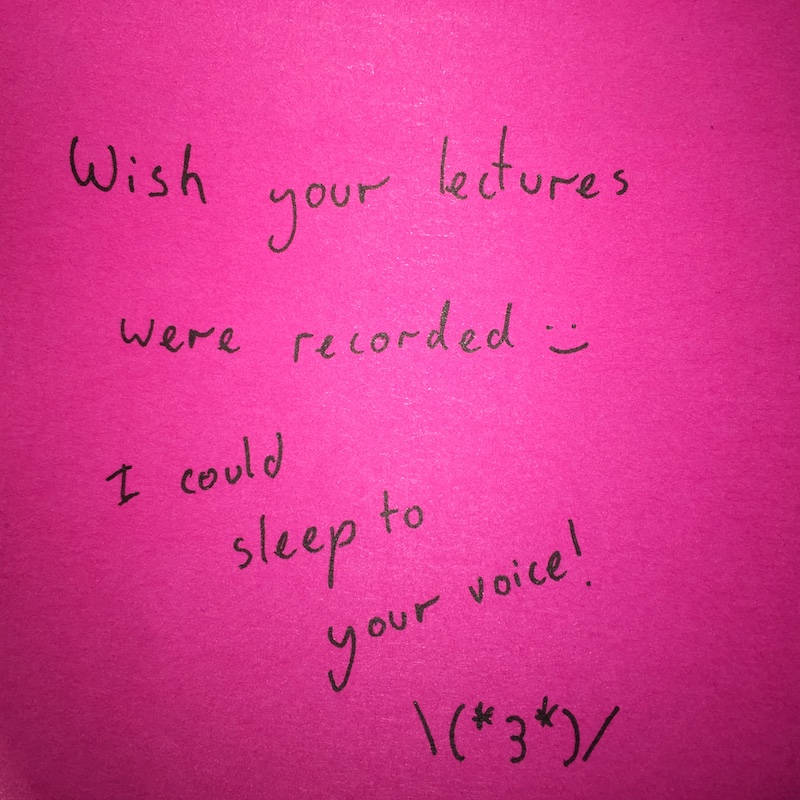 Wish your lectures
were recorded :)
I could
sleep to
your voice!
\(*3*)/